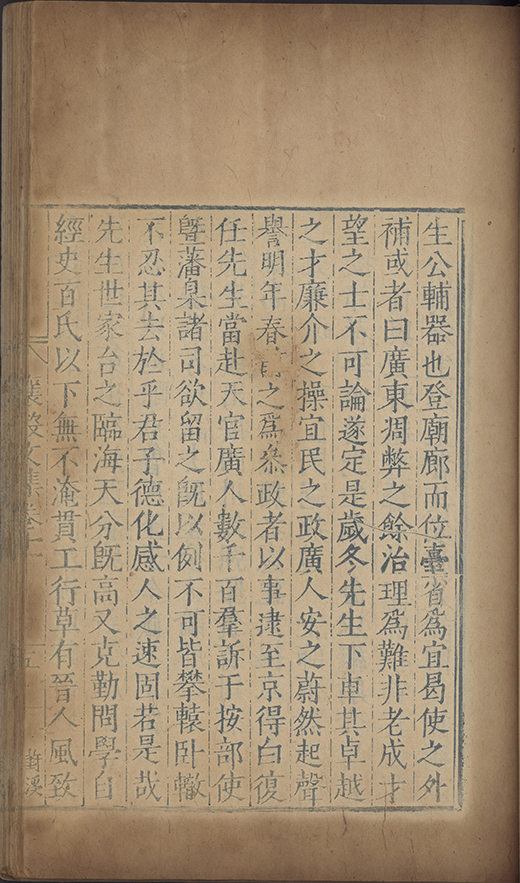 生公輔器也登廟廊而位臺省為宜曷使之外
補或者曰廣東凋弊之餘治理為難非老成才
望之士不可論遂定是歲冬先生下車其卓越
之才廉介之操宜民之政廣人安之蔚然起聲
譽明年春 之為叅政者以事逮至京得白復
任先生當赴天官廣人數千百羣訴于按部使
曁藩臬諸司欲留之旣以例不可皆攀轅卧轍
不忍其去於乎君子德化感人之速固若是哉
先生世家台之臨海天分旣高又克勤問學自
經史百氏以下無不淹貫工行草有晉人風致
文集卷
五